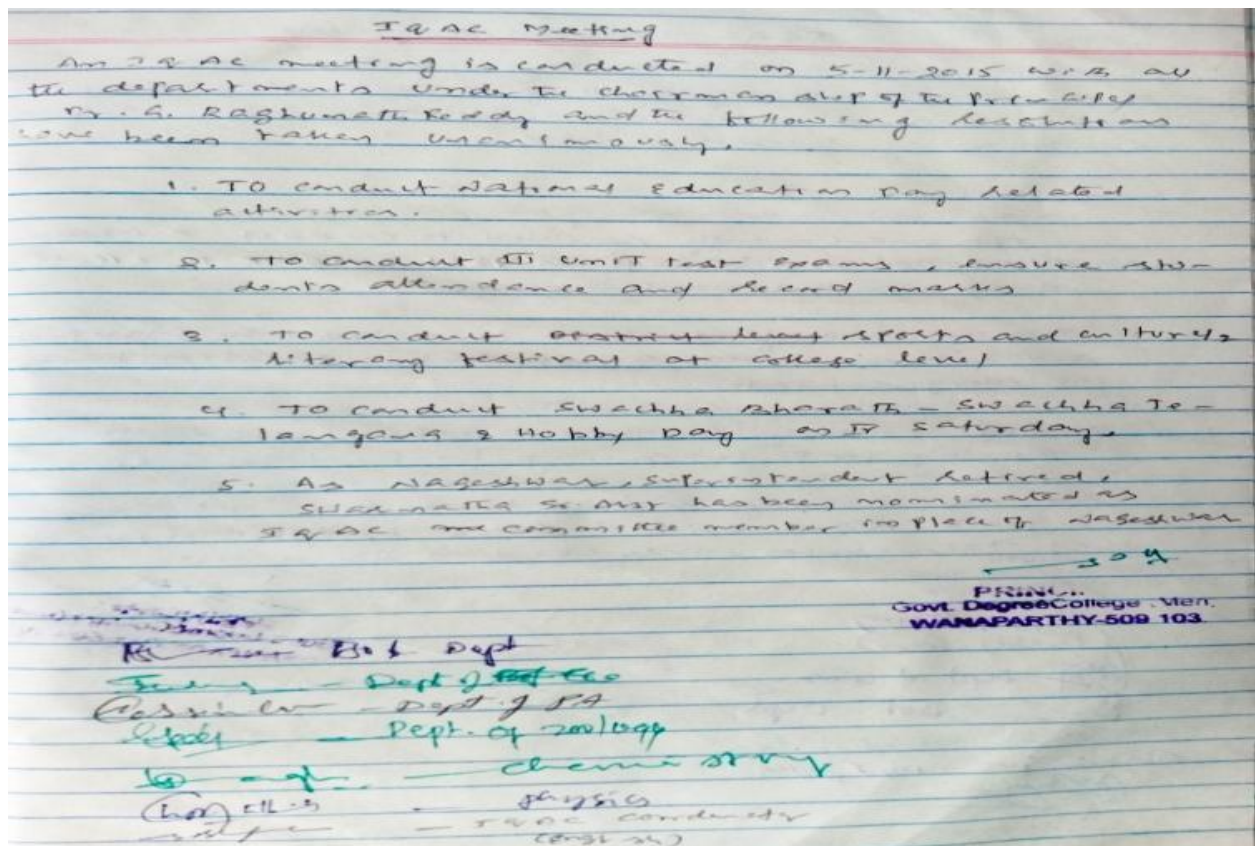 IQAC Meeting
An IQAC meeting is conducted on 5-11-2015 with all
the departments under the chairmanship of the Principal
G. Raghunath Reddy and the following resolutions
have been taken unanimously.
1. To conduct National Education Day related
activities.
2. To conduct III Unit test exams, ensure stu-
dents attendance and record marks
3. To conduct District level sports and cultural,
literary festival at college level
4. To conduct Swachha Bharath - Swachha Te-
langana & Hobby Day on IV Saturday.
5. As Nageshwar, Superintendent retired,
Sr. Asst has been nominated as
IQAC committee member in place of Nageshwar
Govt. Degree College Men.
WANAPARTHY-509 103
Bot Dept
Dept of Eco
Dept of PA
Dept. of Zoology
Chemistry
Physics
IQAC Coordinator
(English)